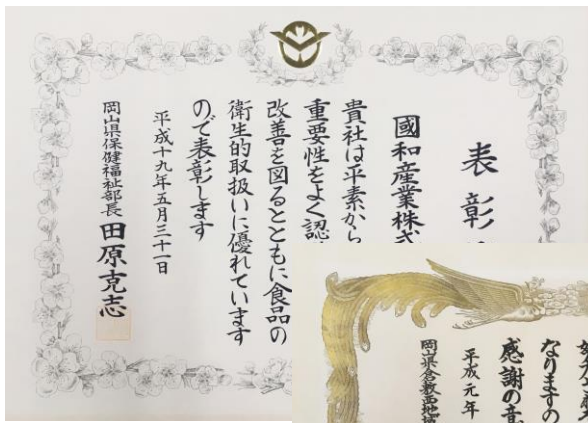 表彰
國和産業株式
貴社は平素から
重要性をよく認
改善を図るとともに食品の
衛生的取扱いに優れています
ので表彰します
平成十九年五月三十一日
岡山県保健福祉部長 田原克志
なりますの
感謝の意
平成元年
岡山県倉敷